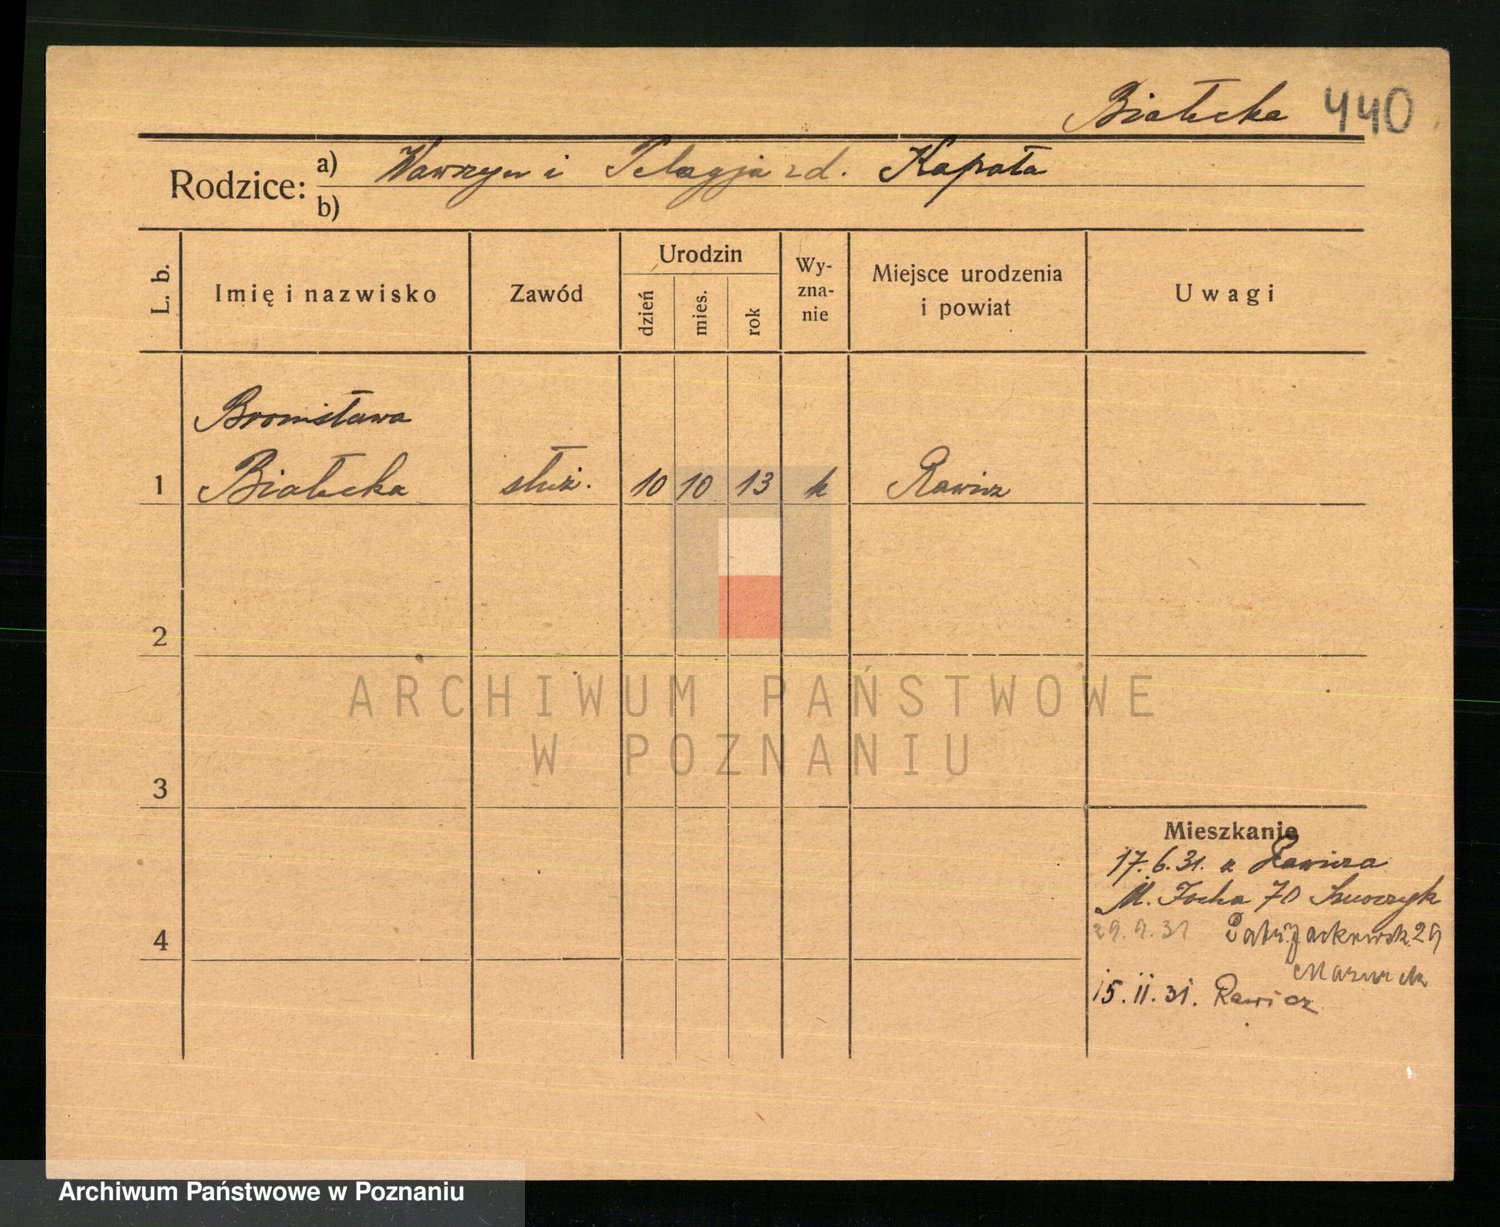 Białecka 440
Rodzice: a) Wawrzyn i Pelagja zd. Kapała
b)
L. b. Imię i nazwisko Zawód Urodzin dzień mies. rok Wyznanie Miejsce urodzenia i powiat Uwagi
Bronisława
1 Białecka służ. 10 10 13 k Rawicz
2
ARCHIWUM PAŃSTWOWE
W POZNANIU
3
Mieszkanie
17.6.31. z Rawicza
M. Focha 70
4
29.9.31 29
15.11.31. Rawicz
Archiwum Państwowe w Poznaniu